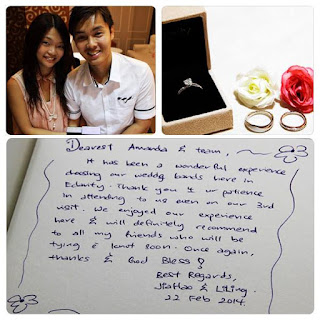 Dearest Amanda & team,
It has been a wonderful experience
choosing our weddg bands here in
Ecbarity. Thank you 4 ur patience
in attending to us even on our 3rd
visit. We enjoyed our experience
here & will definitely recommend
to all my friends who will be
tying e knot soon. Once again,
thanks & God Bless!
Best Regards,
JiaHao & LiLing.
22 Feb 2014.